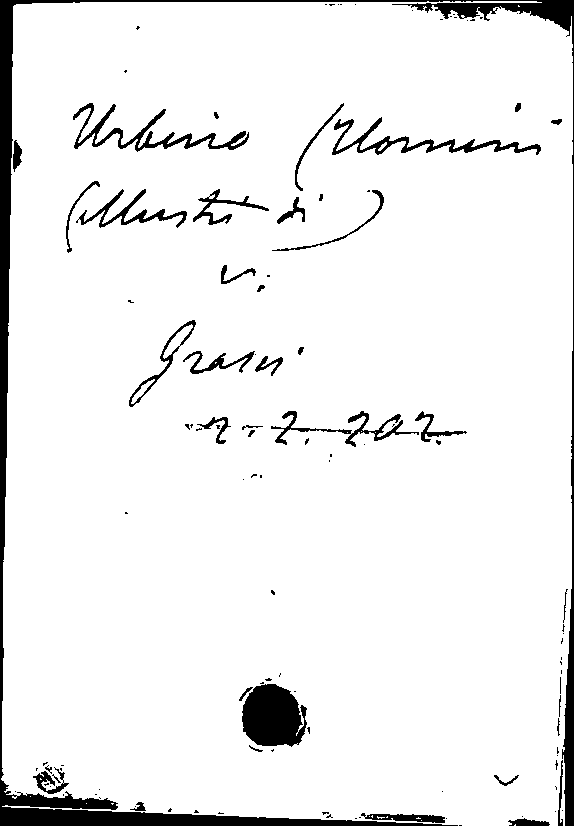 Urbino (Uomini
illustri di)
v.
Grassi
2. 2. 202.